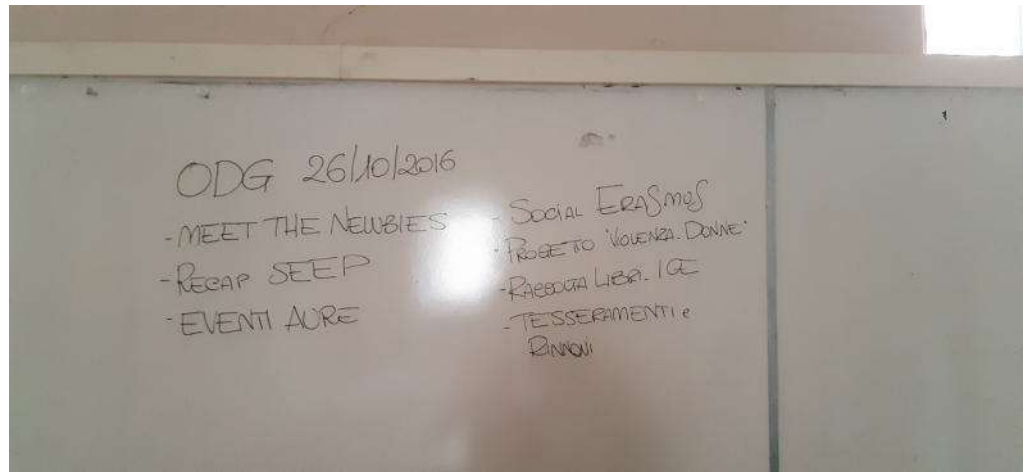 ODG 26/10/2016
- MEET THE NEWBIES
- RECAP SEEP
- EVENTI AURE
- SOCIAL ERASMUS
- PROGETTO "VIOLENZA. DONNE"
- RACCOLTA LIBRI. IGE
- TESSERAMENTI e
RINNOVI